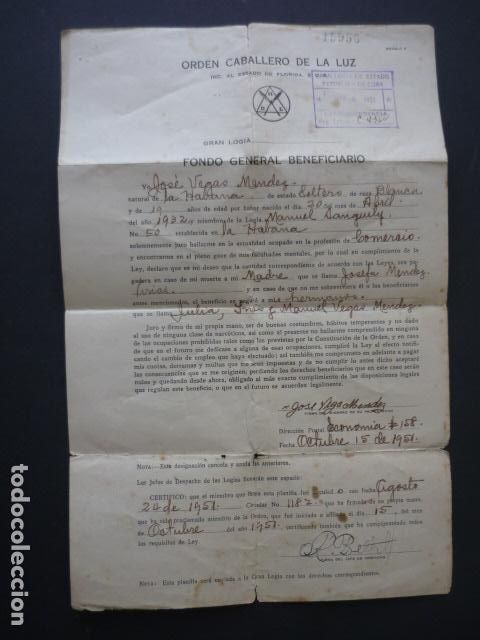 15956
ORDEN CABALLERO DE LA LUZ
INC. AL ESTADO DE FLORIDA, E. U. A.
GRAN LOGIA
FONDO GENERAL BENEFICIARIO
Yo José Vegas Mendez
natural de la Habana de estado Soltero de raza Blanca
y de 19 años de edad por haber nacido el día 30 de mes de Abril
de 1932 y miembro de la Logia Manuel Sanguily
No. 50 establecida en la Habana
solemnemente juro hallarme en la actualidad ocupado en la profesión de Comercio
y encontrarme en el pleno goce de mis facultades mentales, por lo cual en cumplimiento de la
Ley, declaro que es mi deseo que la cantidad correspondiente de acuerdo con las Leyes, sea pa-
gadera en caso de mi muerte a mi Madre que se llama Josefa Mendez
y en caso de que no me sobreviviera él o los beneficiarios
antes mencionados, el beneficio se pagará a mis hermanos
que se llama Julia, Inés y Manuel Vegas Mendez
Juro y firmo de mi propia mano, ser de buenas costumbres, hábitos temperantes y no dado
al uso de ninguna clase de narcóticos, así como el presente no hallarme comprendido en ninguna
de las ocupaciones prohibidas tales como las previstas por la Constitución de la Orden, y en caso
de que en el futuro me dedicase a alguna de esas ocupaciones, cumpliré la Ley al efecto notifi-
cando el cambio de empleo que haya efectuado; así también me comprometo en adelante a pagar
mis cuotas, derramas y multas que me sean impuestas y de no cumplir lo antes dicho aceptaré
las consecuencias que se me originen, perdiendo los derechos beneficiarios que en este caso serán
nulos y quedando desde ahora, obligado al más exacto cumplimiento de las disposiciones legales
que regulan este beneficio, o que en el futuro se acuerden legalmente.
Jose Vegas Mendez
Dirección Postal Economía # 158.
Fecha Octubre 15 de 1951.
NOTA: Esta designación cancela y anula las anteriores.
Los Jefes de Despacho de las Logias llenarán este espacio:
CERTIFICO: que el miembro que firma esta planilla, fué con fecha Agosto
24 de 1951. Circular No. 1182.
que ha sido proclamado miembro de la Orden, que fué iniciado o afiliado el día 15, del mes
de Octubre del año 1951. certificando también que ha cumplimentado todos
los requisitos de Ley.
NOTA: Esta planilla será enviada a la Gran Logia con los derechos correspondientes.
todocoleccion